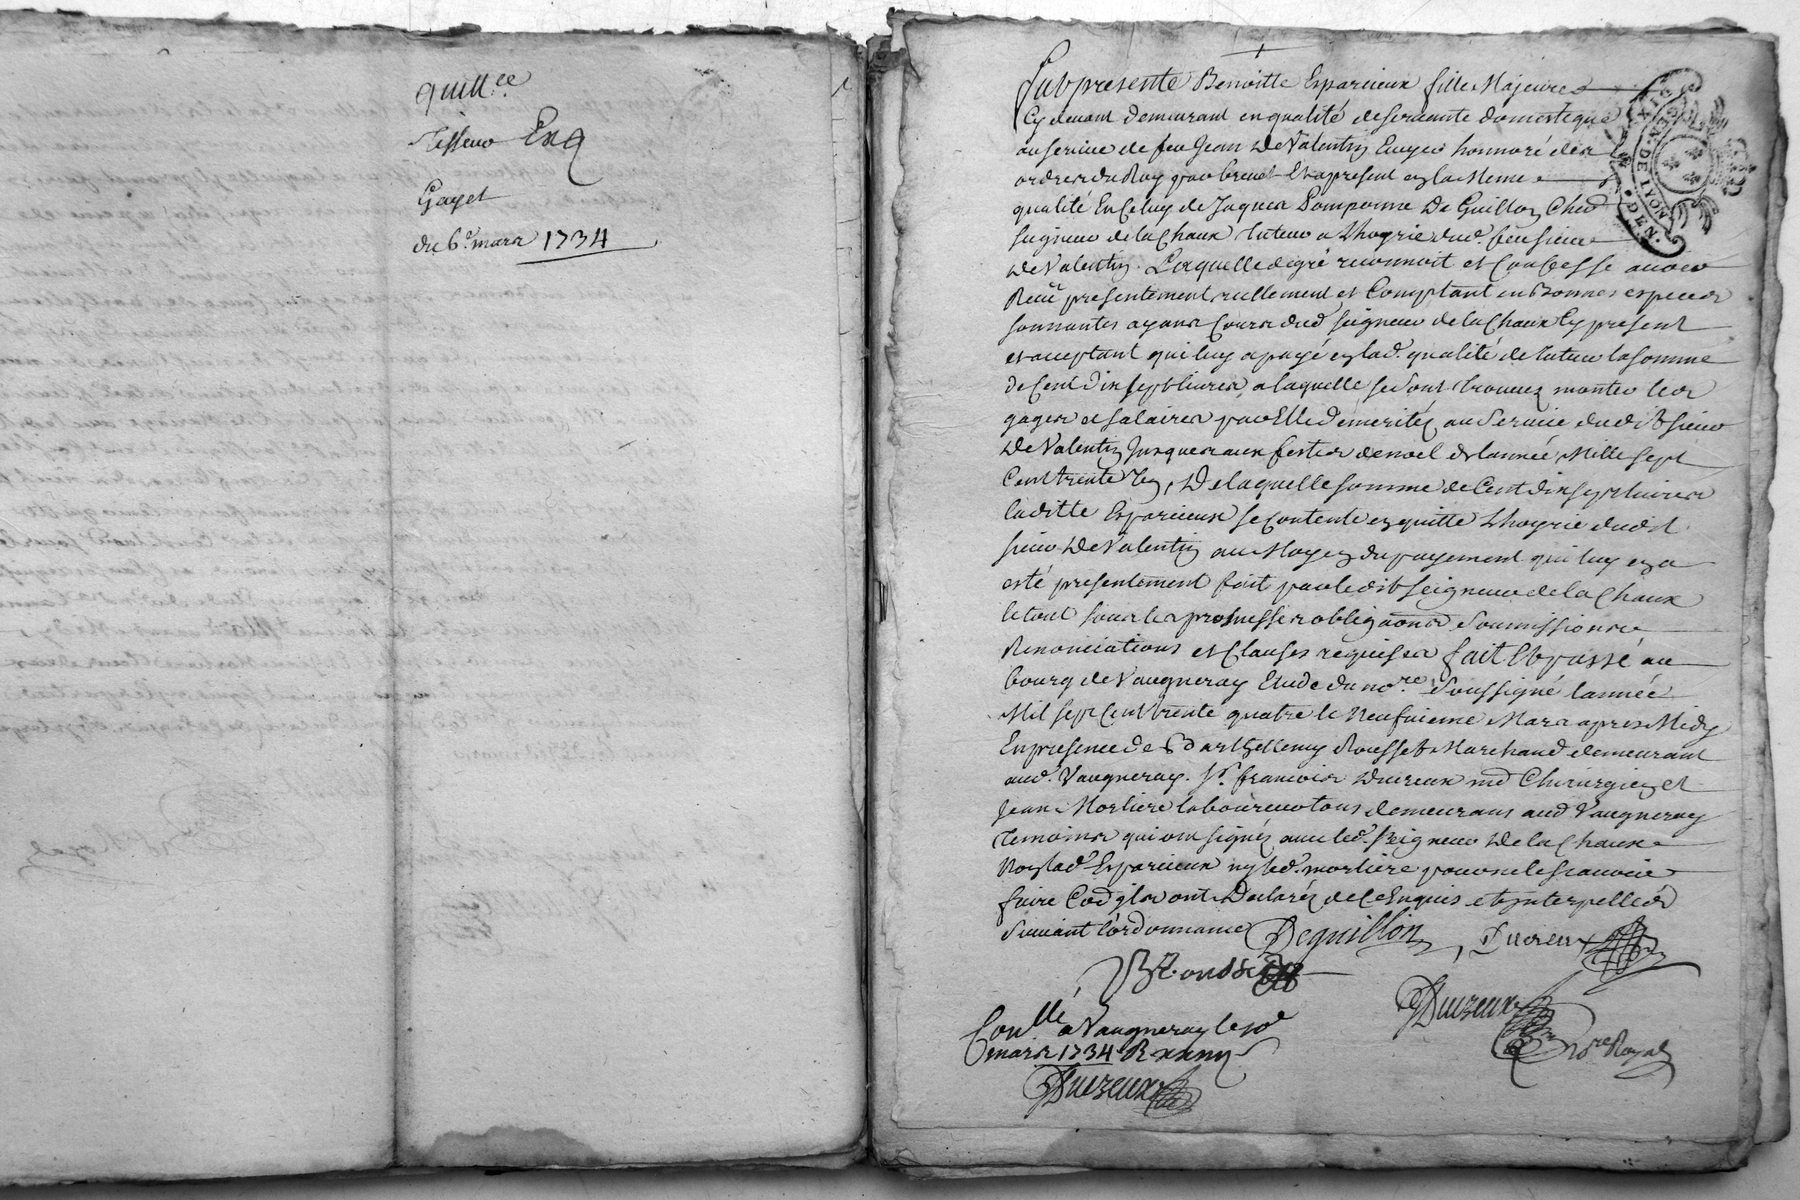 quill.ce
Gayet
du 6e. mars 1734
Fut presente Benoitte Esparcieux fille Majeure
Cy devant demeurant en qualité de servante domestique
au service de feu Jean De Valentin Ecuyer honnoré des
ordres du Roy par brevet Et apresent en la Meme
qualité En Celuy de Jaques Pomponne De Guillon Cher.
seigneur de la Chaux tuteur a Lhoyrie dud. feu sieur
De Valentin. Laquelle de gré reconnoit et Confesse avoir
Receu presentement reellement et Comptant en Bonnes especes
sonnantes ayans Cours dud seigneur de la Chaux Cy present
et acceptant qui luy a payé en lad. qualité de tuteur la somme
de Cent dix sept livres, a laquelle se sont trouvez monter les
gages et salaires par Elle demeritéz au Service dudit sieur
De Valentin Jusques aux festes de noel de lannée Mille sept
Cent trente , De laquelle somme de Cent dix sept livres
laditte Esparcieux se Contente en quitte Lhoyrie dudit
sieur De Valentin au Moyen du payement qui luy en a
esté presentement fait par ledit seigneur de la Chaux
le tout sous les promesses obligaons Soumissions
Renonciations et Clauses requises fait Et passé au
bourg de Vaugneray Etude du nore. Soussigné lannée
Mil sept Cent trente quatre le Neufvieme Mars apres Midy
En presence de Barthellemy Rousset Marchand demeurant
aud. Vaugneray. Sr. francois Ducreux md Chirurgien et
Jean Morliere laboureur tous demeurans aud Vaugneray
temoins qui ont signéz avec led. Seigneur De la Chaux
Non lad Esparcieux ny led. morliere pour ne le scavoir
faire Co͞e ils ont Declaréz de ce Enquis et Interpellés
Suivant lordonnance Deguillon, Ducreux
Ducreux
nore Royal
Conllé a Vaugneray le 10e
mars 1734 R
Ducreux
GEN. DE LYON